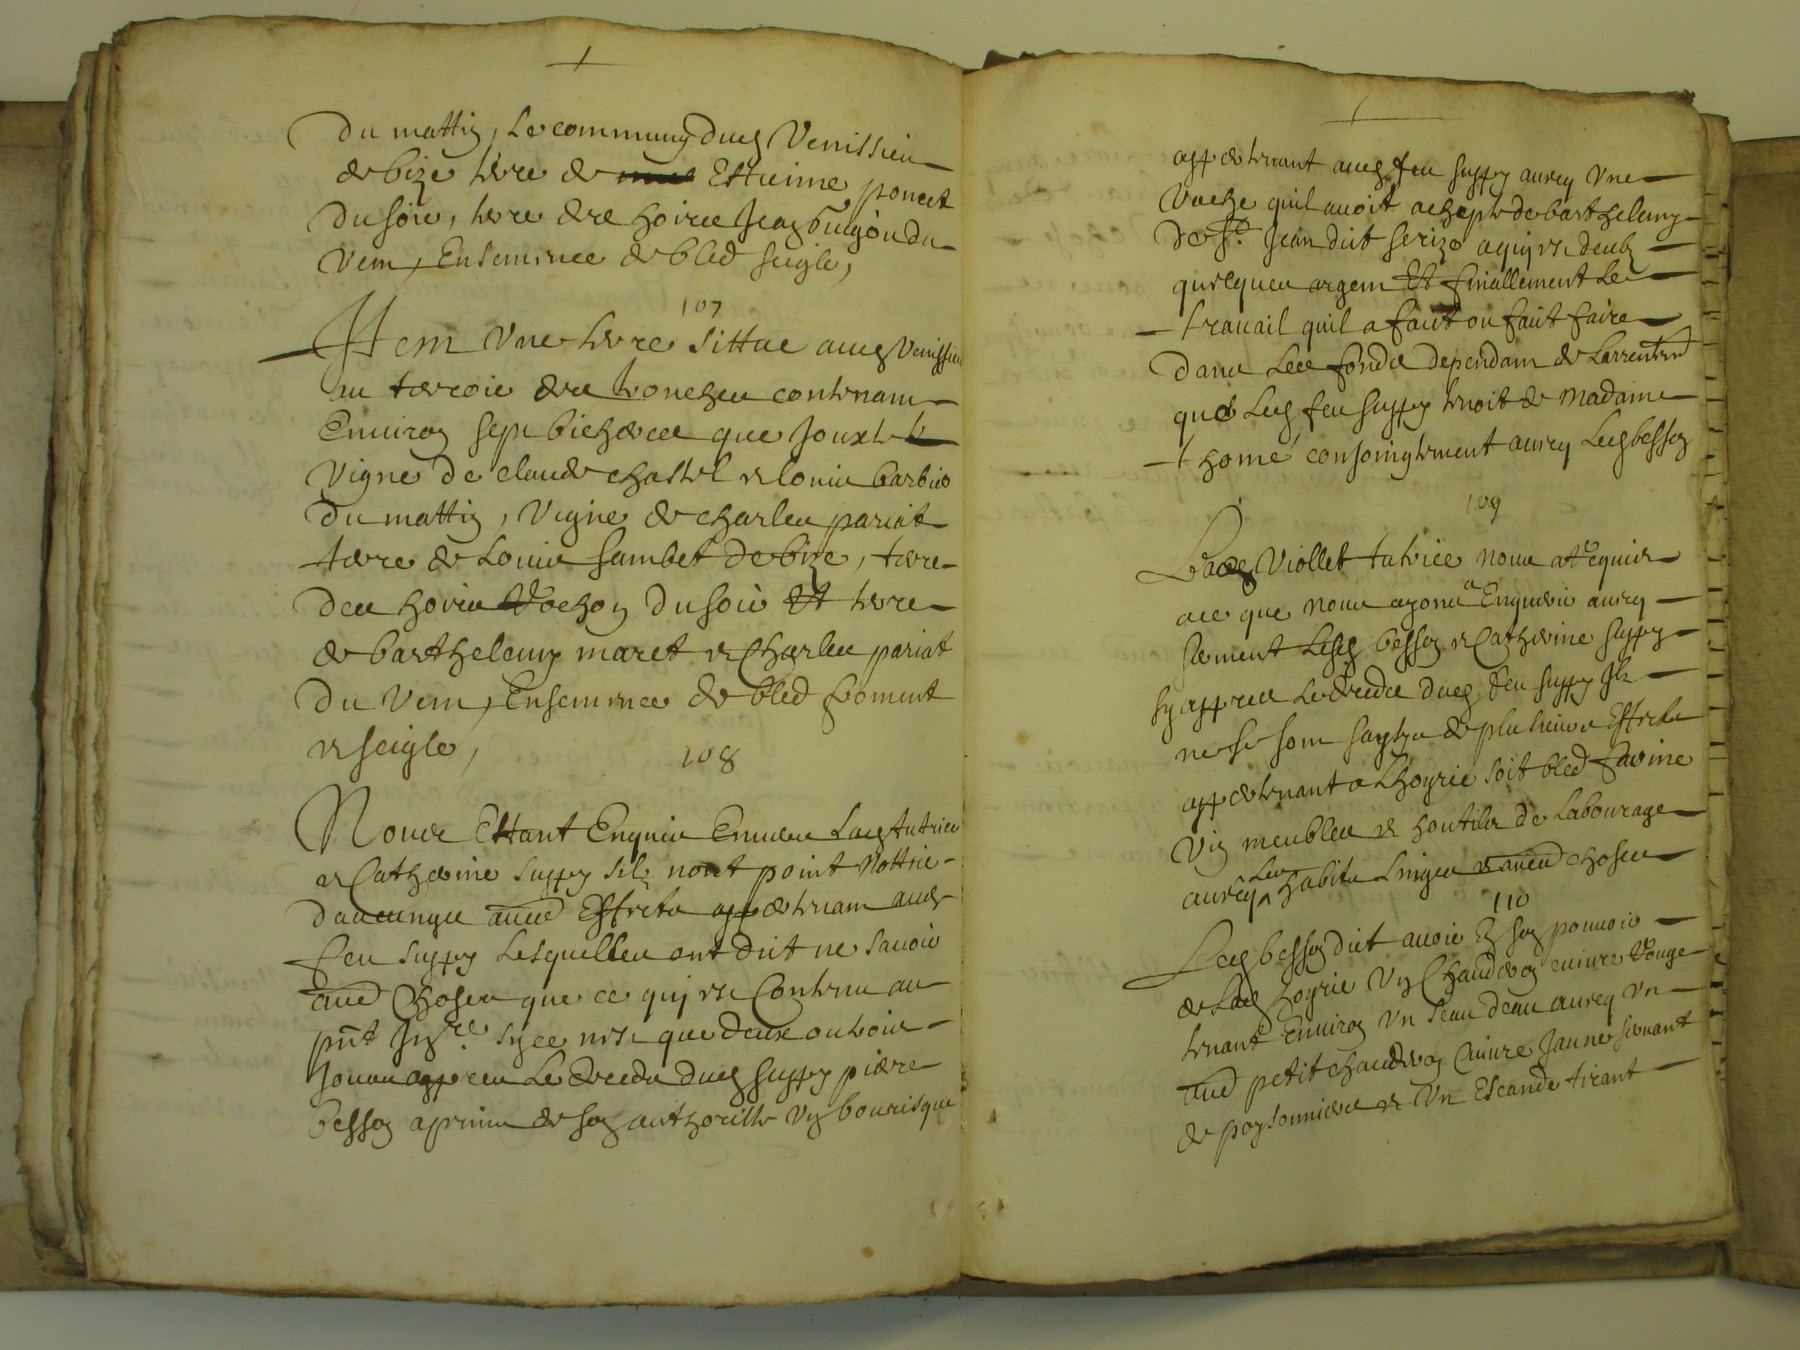 du mattin, le commung dud Venissieu
de bize terre de Estienne poncet
du soir, terre des hoirs Jean buygon du
vent, Enseminee de bled seigle,
107
Item Une terre sittue aud Venissieu
au terroir des contenant
Environ sept bicherees que Jouxte
vigne de claude chastel et louis barbier
du mattin, vigne de charles pariat
terre de Louis Sambet de bize, terre
des hoirs Vachon du soir Et terre
de barthelemy maret et Charles pariat
du vent, Enseminee de bled froment
et seigle,
108
Nous Estant Enquis Envers lad tutrice
et Catherine suppy silz nont point nottice
daucungs aued Effects appertenant aud
feu suppy Lesquelles ont dit ne savoir
aued Choses que ce quy est Contenu au
pnt Inre. syce nest que deux ou trois
Jours apres le deceds dud suppy pierre
besson a prins de son authoritte Un bourisque
appertenant aud feu suppy avecq Une
vache quil avoit achepte de barthelemy
de St. Jean dit serize a quy est deub
quelques argent Et finallement Le
travail quil a fait ou fait faire
dans Les fonds dependant de Larrentemt
que led feu suppy tenoit de Madame
thomé conjoinctement avecq Led besson
109
Lad Viollet tutrice nous a Requis
a ce que nous ayons a Enquerir avecq
serment Led besson et Catherine suppy
sy apres Le deceds dud feu suppy Ilz
ne se sont saysys de plusieurs Effects
appertenant a Lhoyrie soit bled farine
vin meubles et houtilz de Labourage
avecq ses habits Linges et aued choses
110
Led besson dit avoir En son pouvoir
de Lad hoyrie Un Chauderon cuivre Rouge
tenant Environ Un seau deau avecq Un
aued petit chauderon Cuivre Jaune servant
de poysonniere et Un Escande tirant